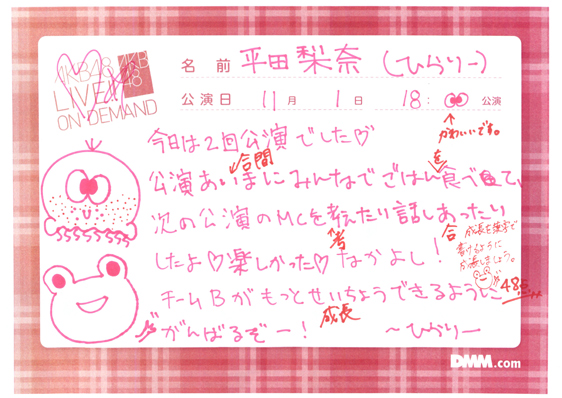 AKB48
LIVE!!
ON DEMAND
AKB
48
名前 平田梨奈(ひらりー)
公演日 11月 1日 18: 公演
かわいいです。
今日は2回公演でした♡
合間
公演あいまにみんなでごはん食べて、
を
次の公演のMCを考えたり話しあったり
考
合
したよ♡楽しかった♡なかよし!
成長を漢字で
書けるように
成長しましょう。
チームBがもっとせいちょうできるように
48点
成長
がんばるぞー! 〜ひらりー
DMM.com